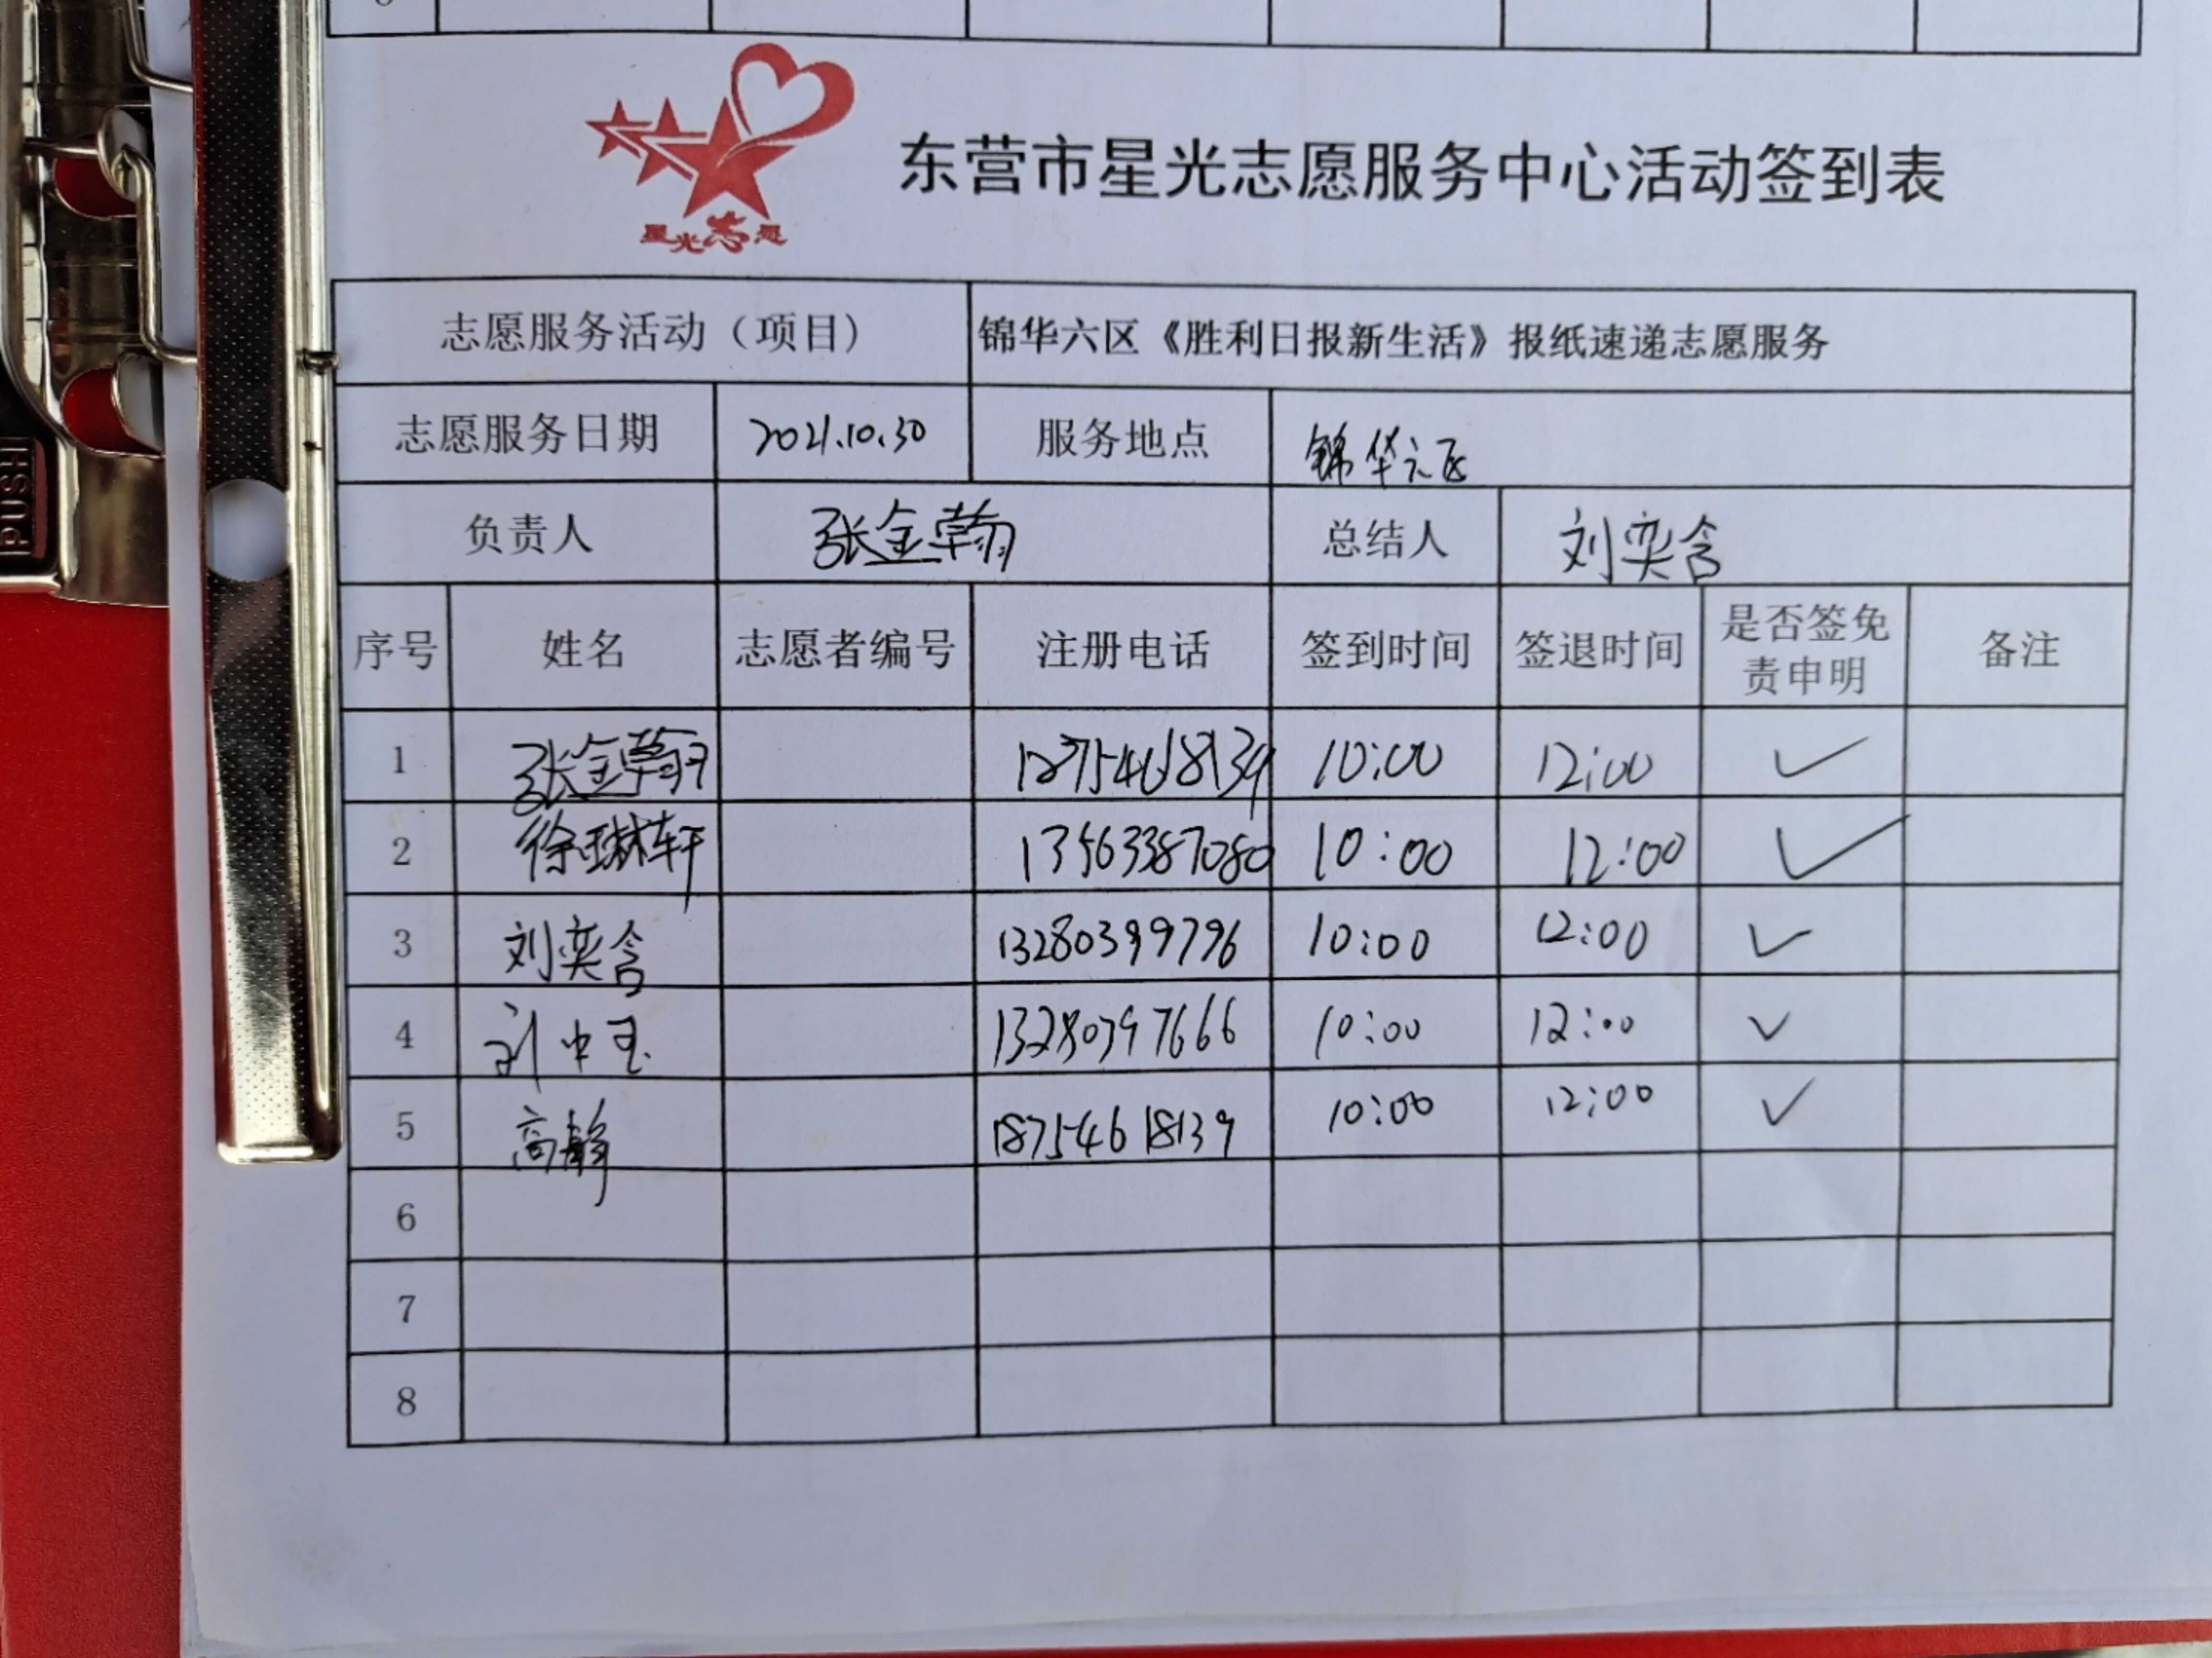 星光志愿
东营市星光志愿服务中心活动签到表
志愿服务活动（项目） 锦华六区《胜利日报新生活》报纸速递志愿服务
志愿服务日期 2021.10.30 服务地点 锦华六区
负责人 张金翰 总结人 刘奕含
序号 姓名 志愿者编号 注册电话 签到时间 签退时间 是否签免责申明 备注
1 张金翰 18754618139 10:00 12:00 ✓
2 徐琳轩 13563387080 10:00 12:00 ✓
3 刘奕含 13280399796 10:00 12:00 ✓
4 刘中玉 13280397666 10:00 12:00 ✓
5 高静 18754618139 10:00 12:00 ✓
6
7
8
PUSH